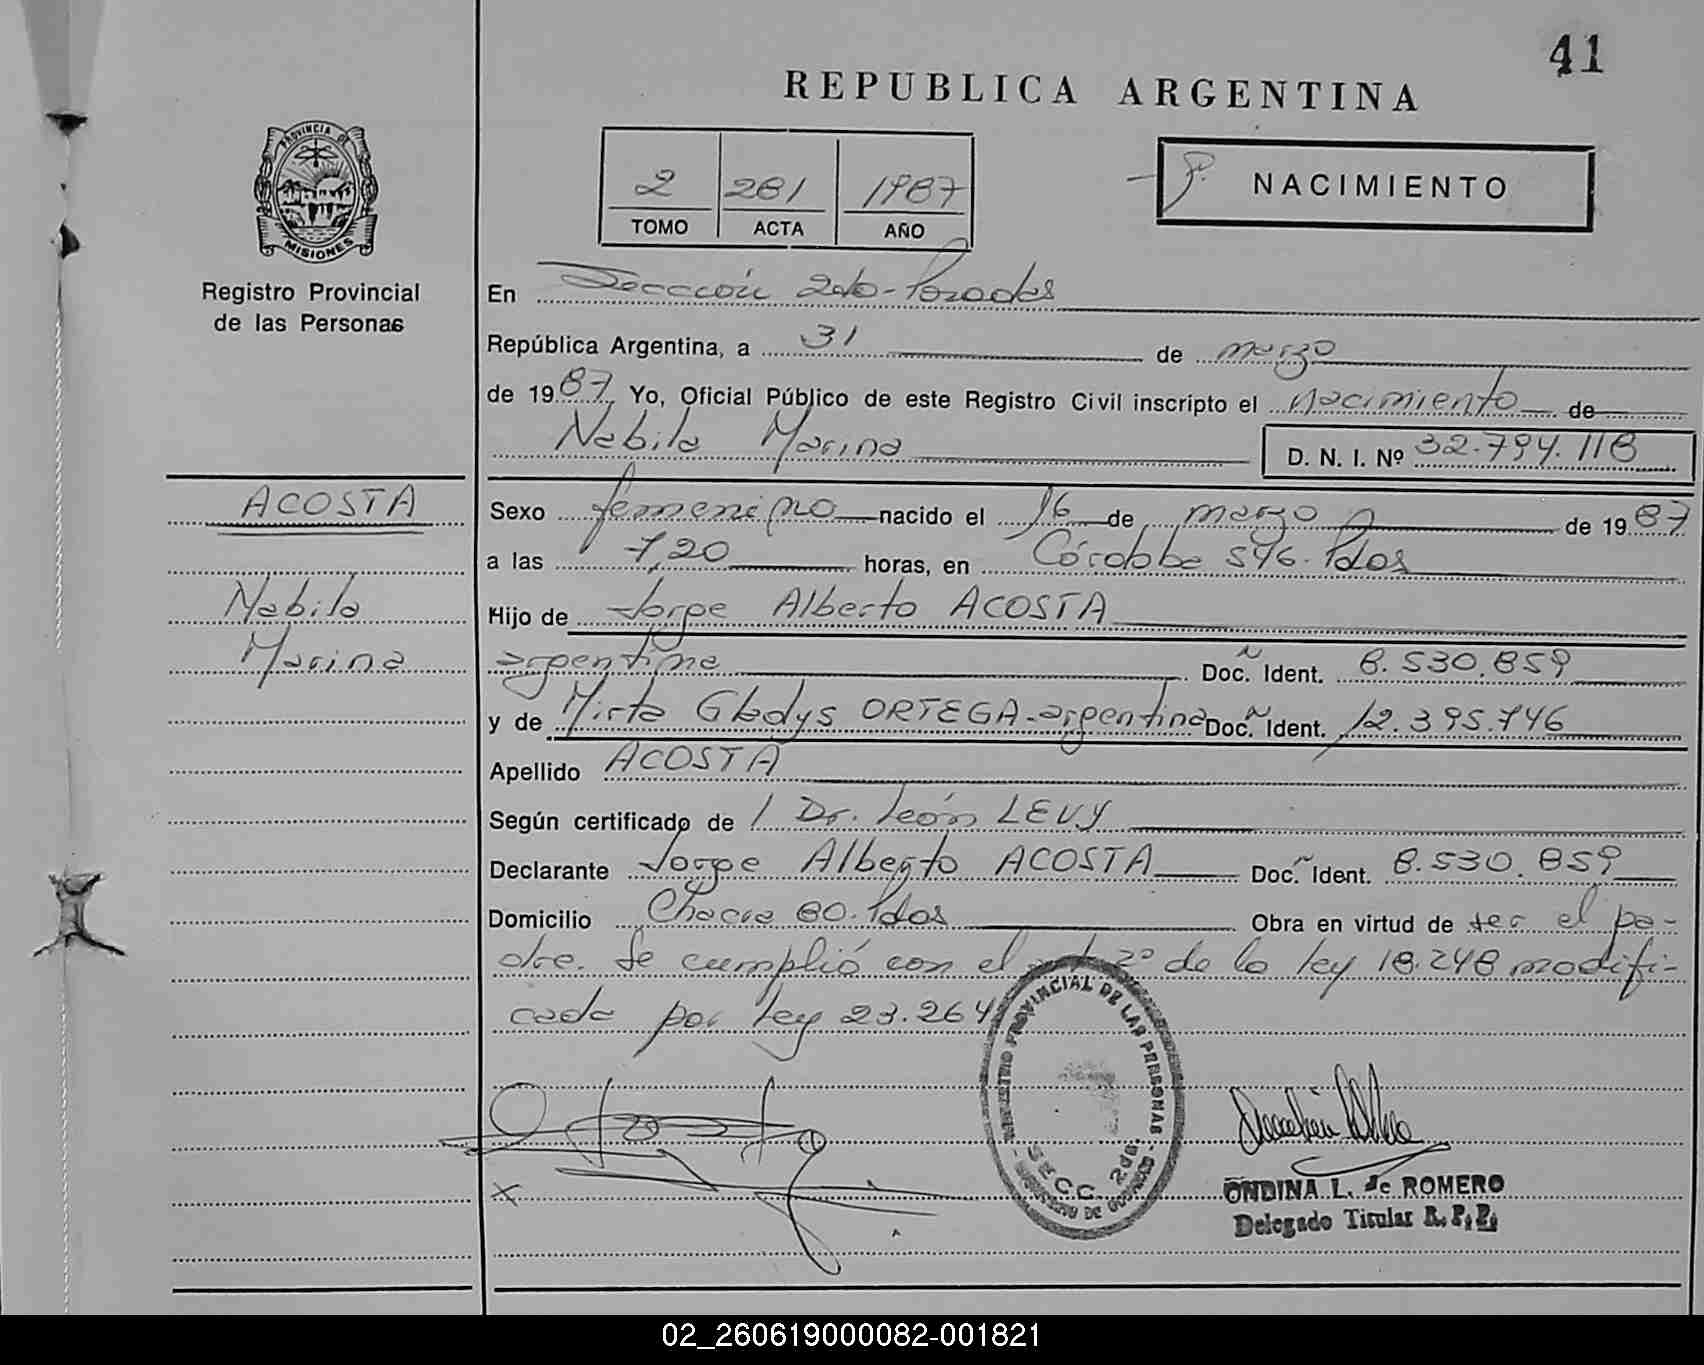 41
REPUBLICA ARGENTINA
PROVINCIA DE
MISIONES
Registro Provincial
de las Personas
2 281 1987
TOMO ACTA AÑO
NACIMIENTO
En Sección 2da - Posadas
República Argentina, a 31 de marzo
de 1987 Yo, Oficial Público de este Registro Civil inscripto el nacimiento de
Nabila Marina D. N. I. Nº 32.794.118
ACOSTA
Nabila
Marina
Sexo femenino nacido el 16 de marzo de 1987
a las 7,20 horas, en Córdoba 546. Pdas
Hijo de Jorge Alberto ACOSTA
argentino Doc. Ident. 8.530.859
y de Mirta Gladys ORTEGA - argentina Doc. Ident. 12.395.746
Apellido ACOSTA
Según certificado de Dr. León LEVY
Declarante Jorge Alberto ACOSTA Doc. Ident. 8.530.859
Domicilio Chacra 80. Pdas Obra en virtud de ser el pa-
dre. Se cumplió con el art 2º de la ley 18.248 modifi-
cada por ley 23.264
REGISTRO PROVINCIAL DE LAS PERSONAS
SECC. 2da.
X
ONDINA L. de ROMERO
Delegado Titular R. P. P.
02_260619000082-001821